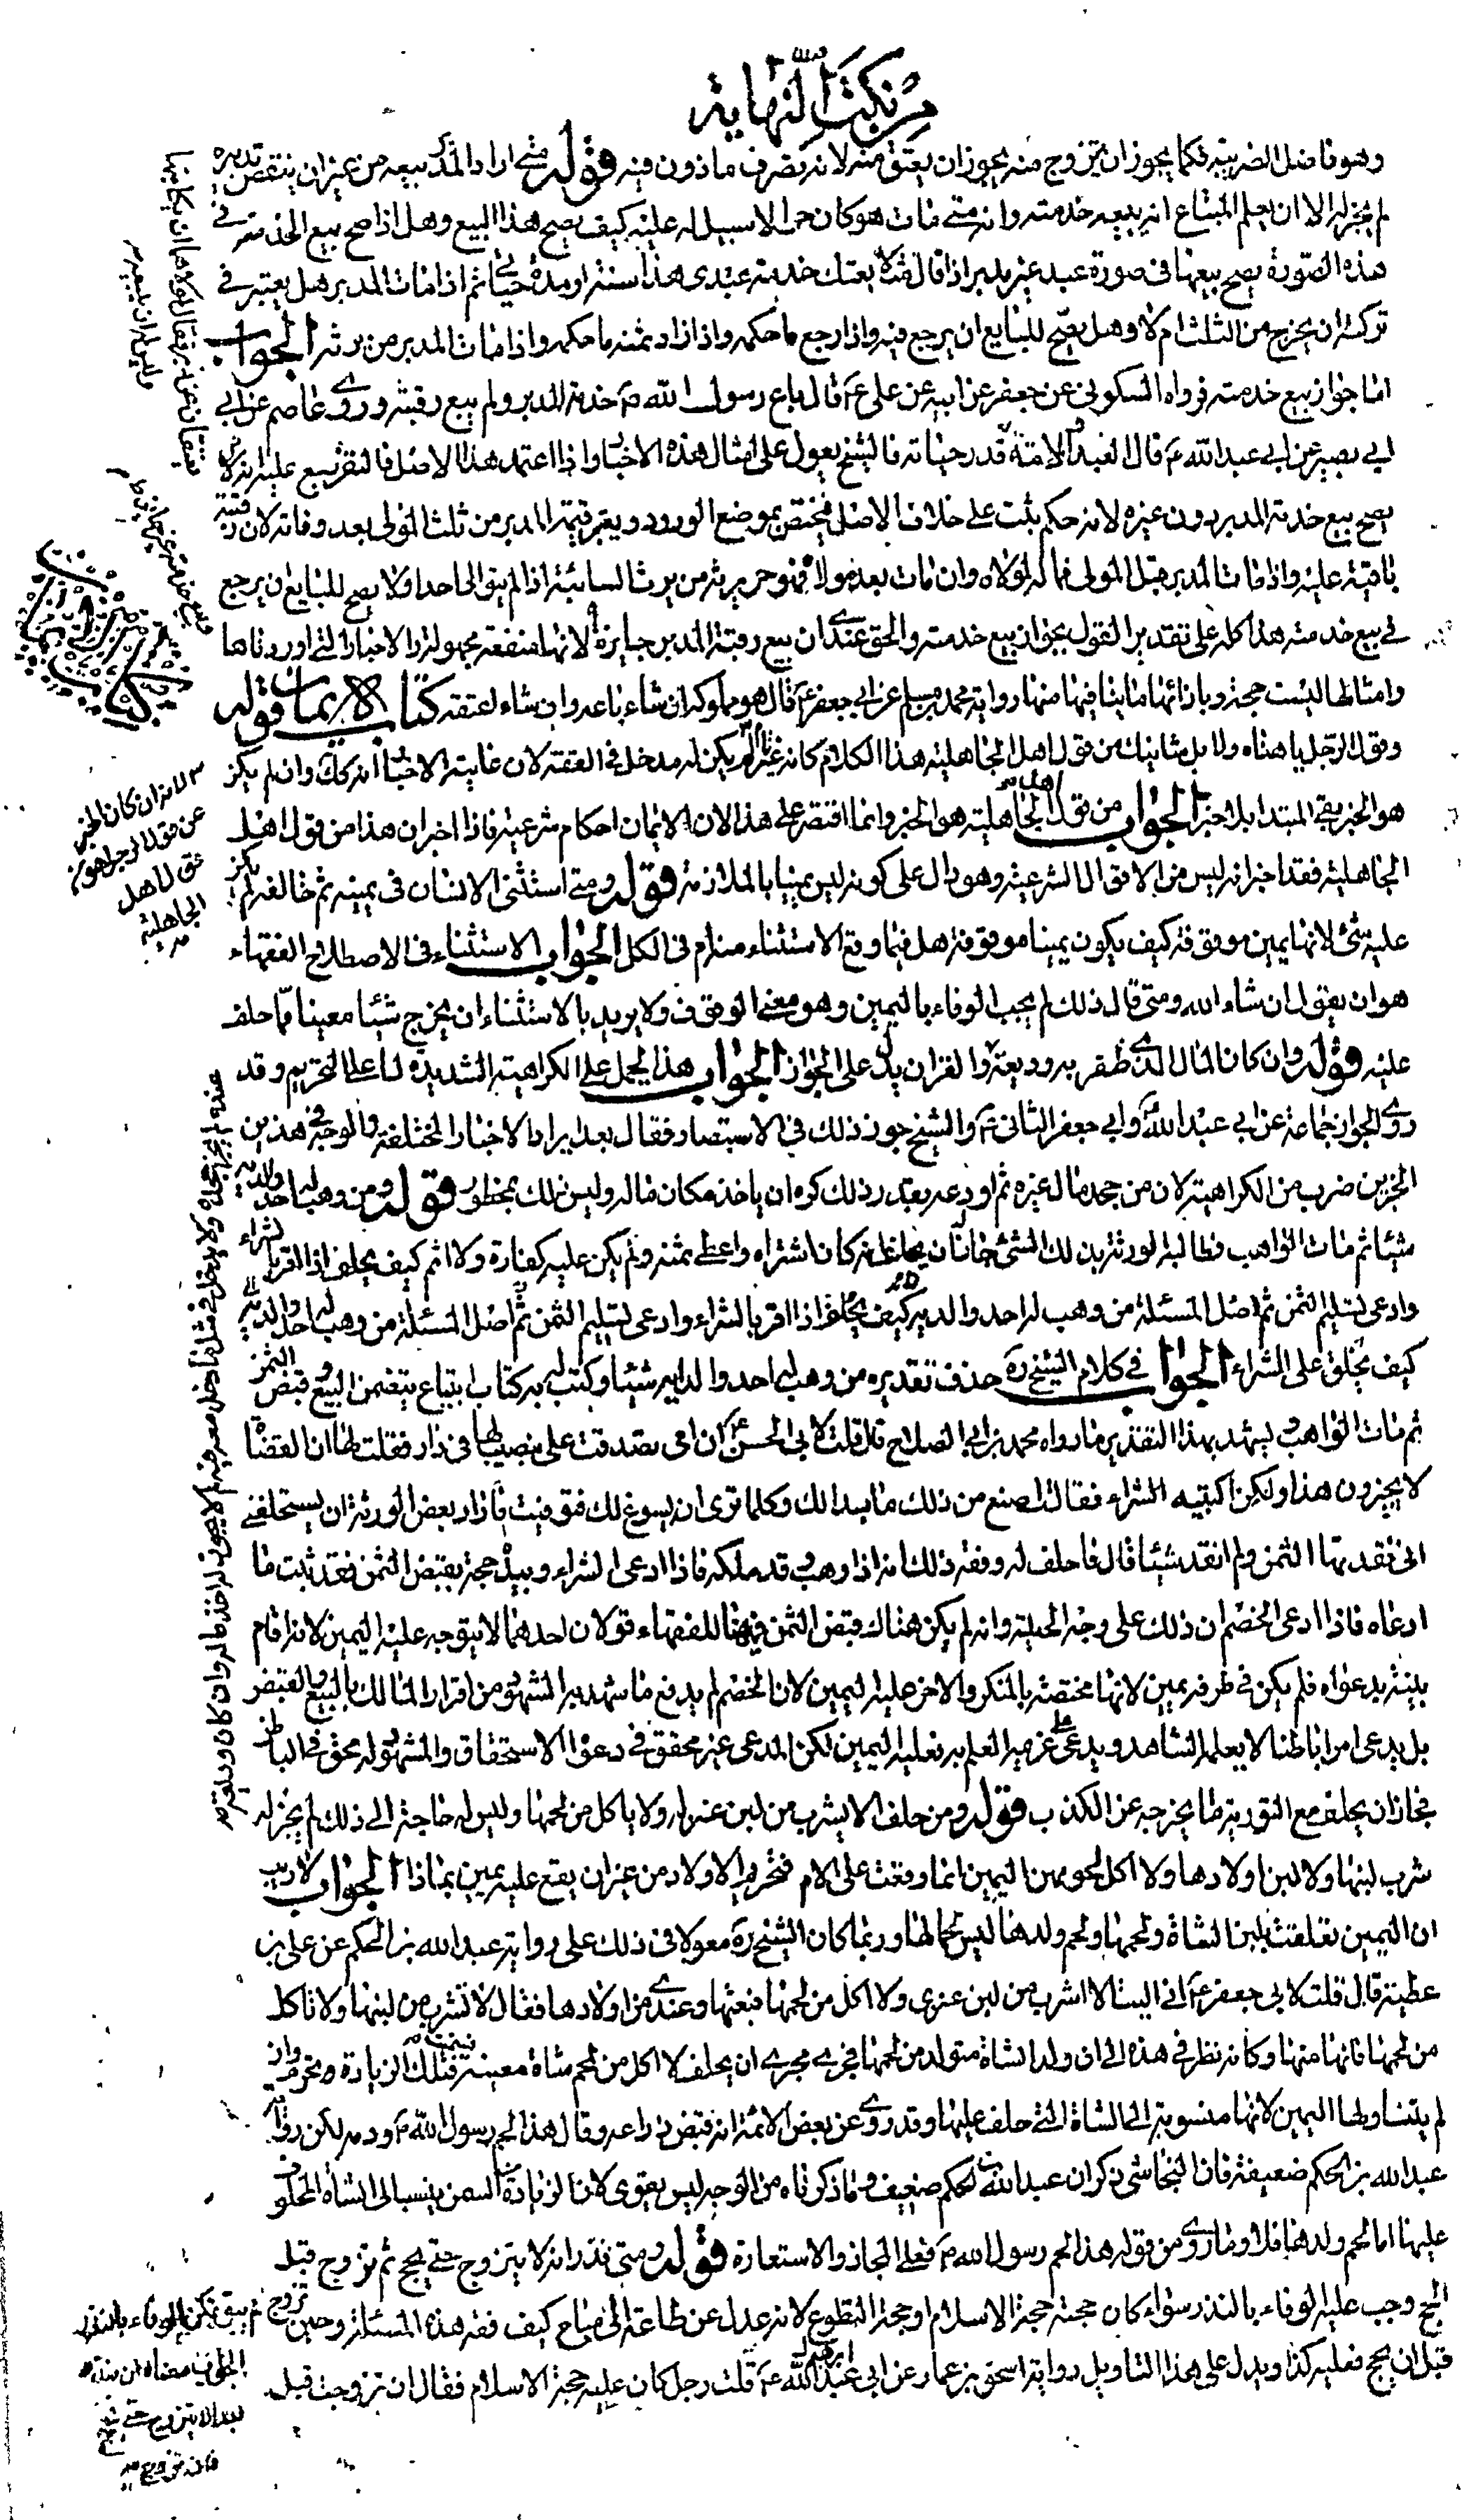 من نكت النهاية
وهو فاضل الضريبة فكما يجوز ان يتزوج منه يجوز ان يعتق منه لانه تصرف ماذون فيه قوله متى اراد المدبر بيعه من غير ان ينقض تدبيره
لم يجز له الا ان يعلم المبتاع انه يبيعه خدمته وانه متى مات هو كان حرا لا سبيل له عليه كيف يصح هذا البيع وهل اذا صح بيع الخدمة في
هذه الصورة يصح بيعها في صورة عبد غير مدبر اذا قال مثلا بعتك خدمة عبدي هذا سنة او مدة حياتي ثم اذا مات المدبر هل يعتبر في
تركته ان يخرج من الثلث ام لا وهل يصح للبايع ان يرجع فيه واذا رجع ما حكمه واذا زاد ثمنه ما حكمه واذا مات المدبر من يرثه الجواب
اما جواز بيع خدمته فرواه السكوني عن جعفر عن ابيه عن علي ع قال باع رسول الله ص خدمة المدبر ولم يبع رقبته وروى عاصم عن ابي
ابي بصير عن ابي عبد الله ع قال العبد والامة قدر حياته فالشيخ يعول على امثال هذه الاخبار واذا اعتمد هذا الاصل فالتفريع عليه انه لا
يصح بيع خدمة المدبر دون غيره لانه حكم يثبت على خلاف الاصل فيختص بموضع الورود ويعتبر قيمة المدبر من ثلث المولى بعد وفاته لان رقبته
باقية عليه واذا مات المدبر قبل المولى فماله لمولاه وان مات بعد مولاه فهو حر يرثه من يرث السائبة اذا لم يتوال احدا ولا يصح للبايع ان يرجع
في بيع خدمته هذا كله على تقدير القول بجواز بيع خدمته والحق عندي ان بيع رقبة المدبر جايزة لا لانها منفعة مجهولة والاخبار التي اوردناها
وامثالها ليست حجة وبازائها ما ينافيها منها رواية محمد بن مسلم عن ابي جعفر ع قال هو مملوكه ان شاء باعه وان شاء اعتقه كتاب الايمان قوله
وقول الرجل يا هناه ولا بل شانيك من قول اهل الجاهلية هذا الكلام كانه غير تام ولم يكن له مدخل في الفقه لان غايته الاخبار انه كذلك وان لم يكن
هو الخبر بقي المبتدا بلا خبر الجواب من قول اهل الجاهلية هو الخبر وانما اقتصر على هذا لان الايمان احكام شرعية فاذا اخبر ان هذا من قول اهل
الجاهلية فقد اخبر انه ليس من الاقوال الشرعية وهو دال على كونه ليس يمينا بالملازمة قوله ومتى استثنى الانسان في يمينه ثم خالف لم يكن
عليه شئ لانها يمين موقوفة كيف يكون يمينا موقوفة هل فيما وقع الاستثناء منه ام في الكل الجواب الاستثناء في الاصطلاح الفقهاء
هو ان يقول ان شاء الله ومتى قال ذلك لم يجب الوفاء باليمين وهو معنى الوقوف ولا يريد بالاستثناء ان يخرج شيئا معينا مما حلف
عليه قوله وان كان المال الذي ظفر به وديعة والقران يدل على الجواز الجواب هذا يحمل على الكراهية الشديدة لا على التحريم وقد
روى الجواز جماعة عن ابي عبد الله ع وابي جعفر الثاني ع والشيخ جوز ذلك في الاستبصار فقال بعد ايراد الاخبار المختلفة والوجه في هذين
الخبرين ضرب من الكراهية لان من جحد مال غيره ثم اودعه بقدر ذلك كره ان ياخذ مكان ماله وليس ذلك بمحظور قوله ومن وهب له احد والديه
شيئا ثم مات الواهب فطالبه الورثة بذلك الشئ جاز ان يحلف انه كان اشتراه واعطى ثمنه ولم يكن عليه كفارة ولا اثم كيف يحلف اذا اقر بالشراء
وادعى تسليم الثمن ثم اصل المسئلة من وهب له احد والديه كيف يحلف اذا اقر بالشراء وادعى تسليم الثمن ثم اصل المسئلة من وهب له احد والديه
كيف يحلف على الشراء الجواب في كلام الشيخ ره حذف تقديره من وهب له احد والديه شيئا وكتب له به كتاب ابتياع يتضمن البيع وقبض الثمن
ثم مات الواهب ويشهد بهذا التقدير ما رواه محمد بن ابي الصلاح قال قلت لابي الحسن ع ان امي تصدقت علي بنصيب لها في دار فقلت لها ان القضاة
لا يجيزون هذا ولكن اكتبيه الشراء فقالت اصنع من ذلك ما بدا لك وكلما ترى انه يسوغ لك فتوفيت فاراد بعض الورثة ان يستحلفني
اني نقدتها الثمن ولم انقد شيئا قال فاحلف له وفقه ذلك انه اذا وهب وقد ملكه فاذا ادعى الشراء وبيده حجة بقبض الثمن فقد ثبت ما
ادعاه فاذا ادعى الخصم ان ذلك على وجه الحيلة وانه لم يكن هناك قبض الثمن فههنا للفقهاء قولان احدهما لا يتوجه عليه اليمين لانه اقام
بينة بدعواه فلم يكن في طرفه يمين لانها مختصة بالمنكر والاخر عليه اليمين لان الخصم لم يدفع ما شهد به الشهود من اقرار المالك بالبيع والقبض
بل يدعى امرا باطنا لا يعلمه الشاهد ويدعى على غريمه العلم به فعليه اليمين لكن المدعى غير محقق في دعوى الاستحقاق والمشهود له محق في الباطن
فجاز ان يحلف مع التورية بما يخرجه عن الكذب قوله ومن حلف الا يشرب من لبن عنز له ولا ياكل من لحمها وليس له حاجة الى ذلك لم يجز له
شرب لبنها ولا لبن اولادها ولا اكل لحومهن اليمين انما وقعت على الام فتحريم الاولاد من غير ان يقع عليه يمين بماذا الجواب لا ريب
ان اليمين تعلقت بلبن الشاة ولحمها ولحم ولدها ليس لحما لها وربما كان الشيخ ره معولا في ذلك على رواية عبد الله بن الحكم عن علي بن
عطية قال قلت لابي جعفر ع اني اليت الا اشرب من لبن عنزي ولا اكل من لحمها فبعتها وعندي من اولادها فقال لا تشرب من لبنها ولا تاكل
من لحمها فانها منها وكانه نظر في هذه الى ان ولد الشاة متولد من لحمها فجرى مجرى ان يحلف لا اكل من لحم شاة معينة فتلك الزيادة محرمة وان
لم يتناولها اليمين لانها منسوبة الى الشاة التي حلف عليها وقد روى عن بعض الائمة انه قبض ذراعه وقال هذا لحم رسول الله ص ودمه لكن رواية
عبد الله بن الحكم ضعيفة فان النجاشي ذكر ان عبد الله بن الحكم ضعيف وما ذكرناه من الوجه ليس بقوي لان الزيادة السمن ينسب الى الشاة المحلوف
عليها اما لحم ولدها فلا وما روى من قوله هذا لحم رسول الله ص فعلى المجاز والاستعارة قوله ومتى نذر انه لا يتزوج حتى يحج ثم تزوج قبل
الحج وجب عليه الوفاء بالنذر سواء كان حجته حجة الاسلام او حجة التطوع لانه عدل عن طاعة الى مباح كيف فقه هذه المسئلة وحين تزوج لم يبق يمكن الوفاء بالنذر
قبل ان يحج فعليه كذا ويدل على هذا التاويل رواية اسحق بن عمار عن ابي ابرهيم ع قلت رجل كان عليه حجة الاسلام فقال ان تزوجت قبل
لانه ان كان الخبر
عن قول الرجل هو من
قول اهل
الجاهلية